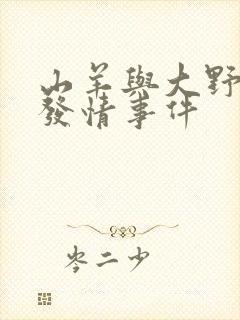 山羊與大野
發情事件
岑二少